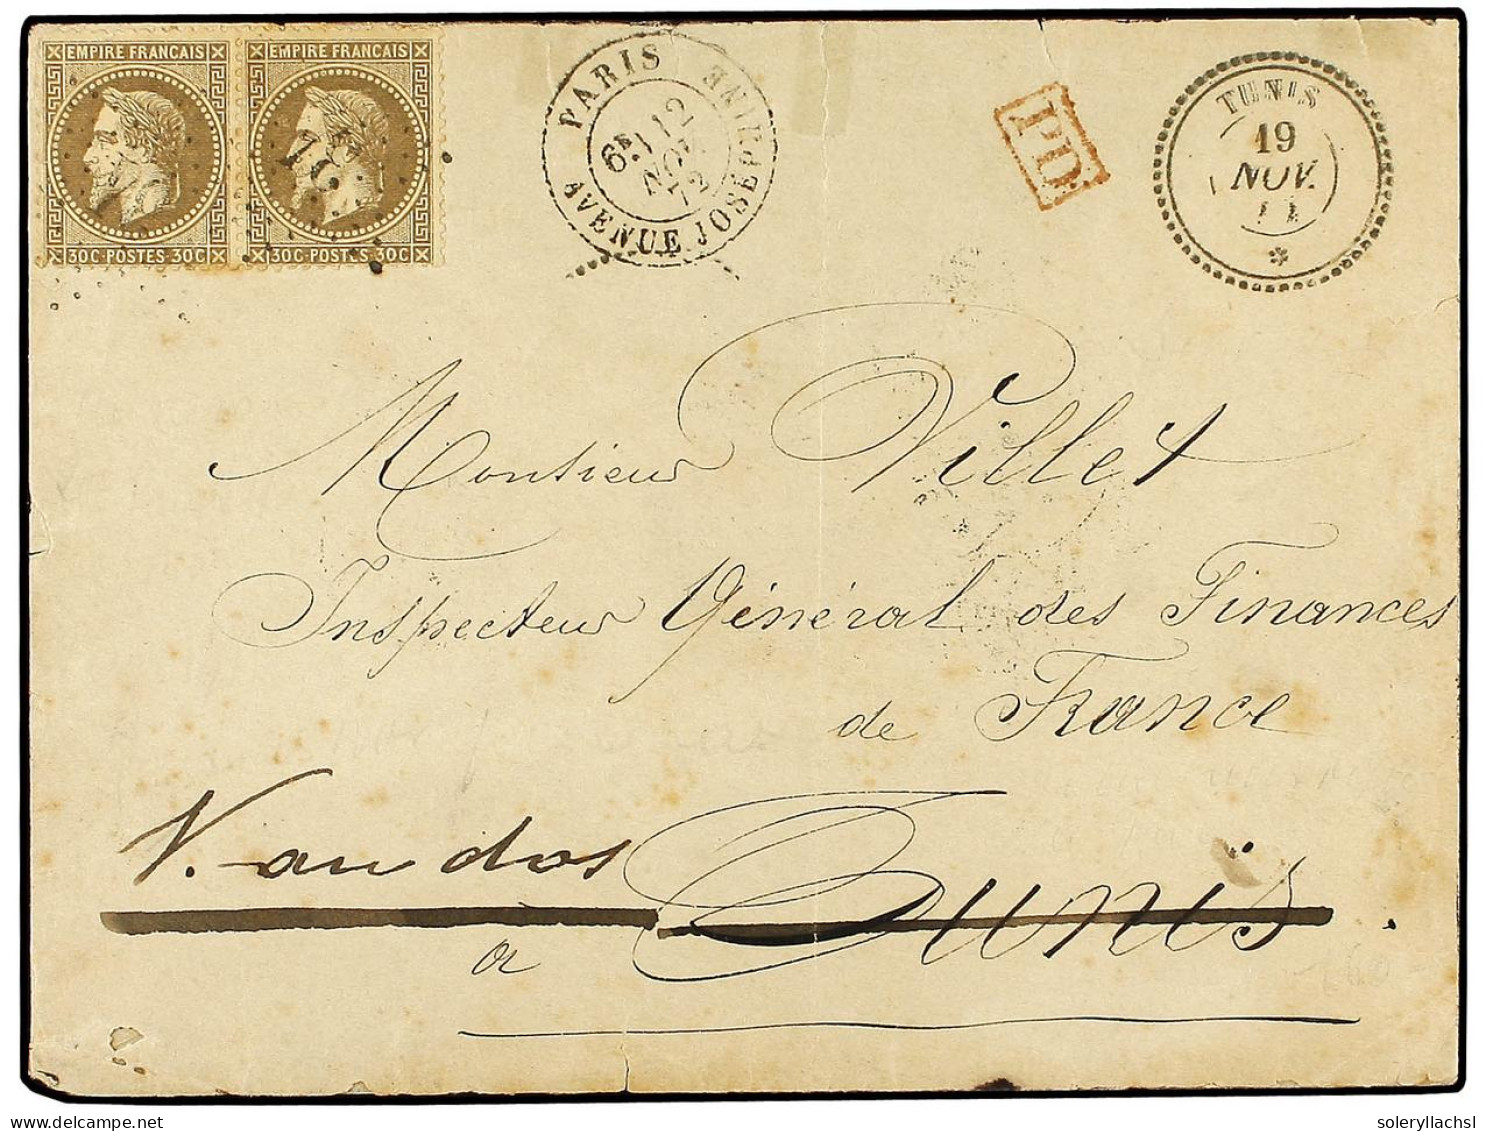 EMPIRE FRANCAIS EMPIRE FRANCAIS
30C·POSTES·30C 30C·POSTES·30C
PARIS
6E 12
NOV.
72
AVENUE JOSÉPHINE
PD
TUNIS
19
NOV.
*
Monsieur Villet
Inspecteur Général des Finances
de France
V. au dos
à Tunis.
soleryllachsl